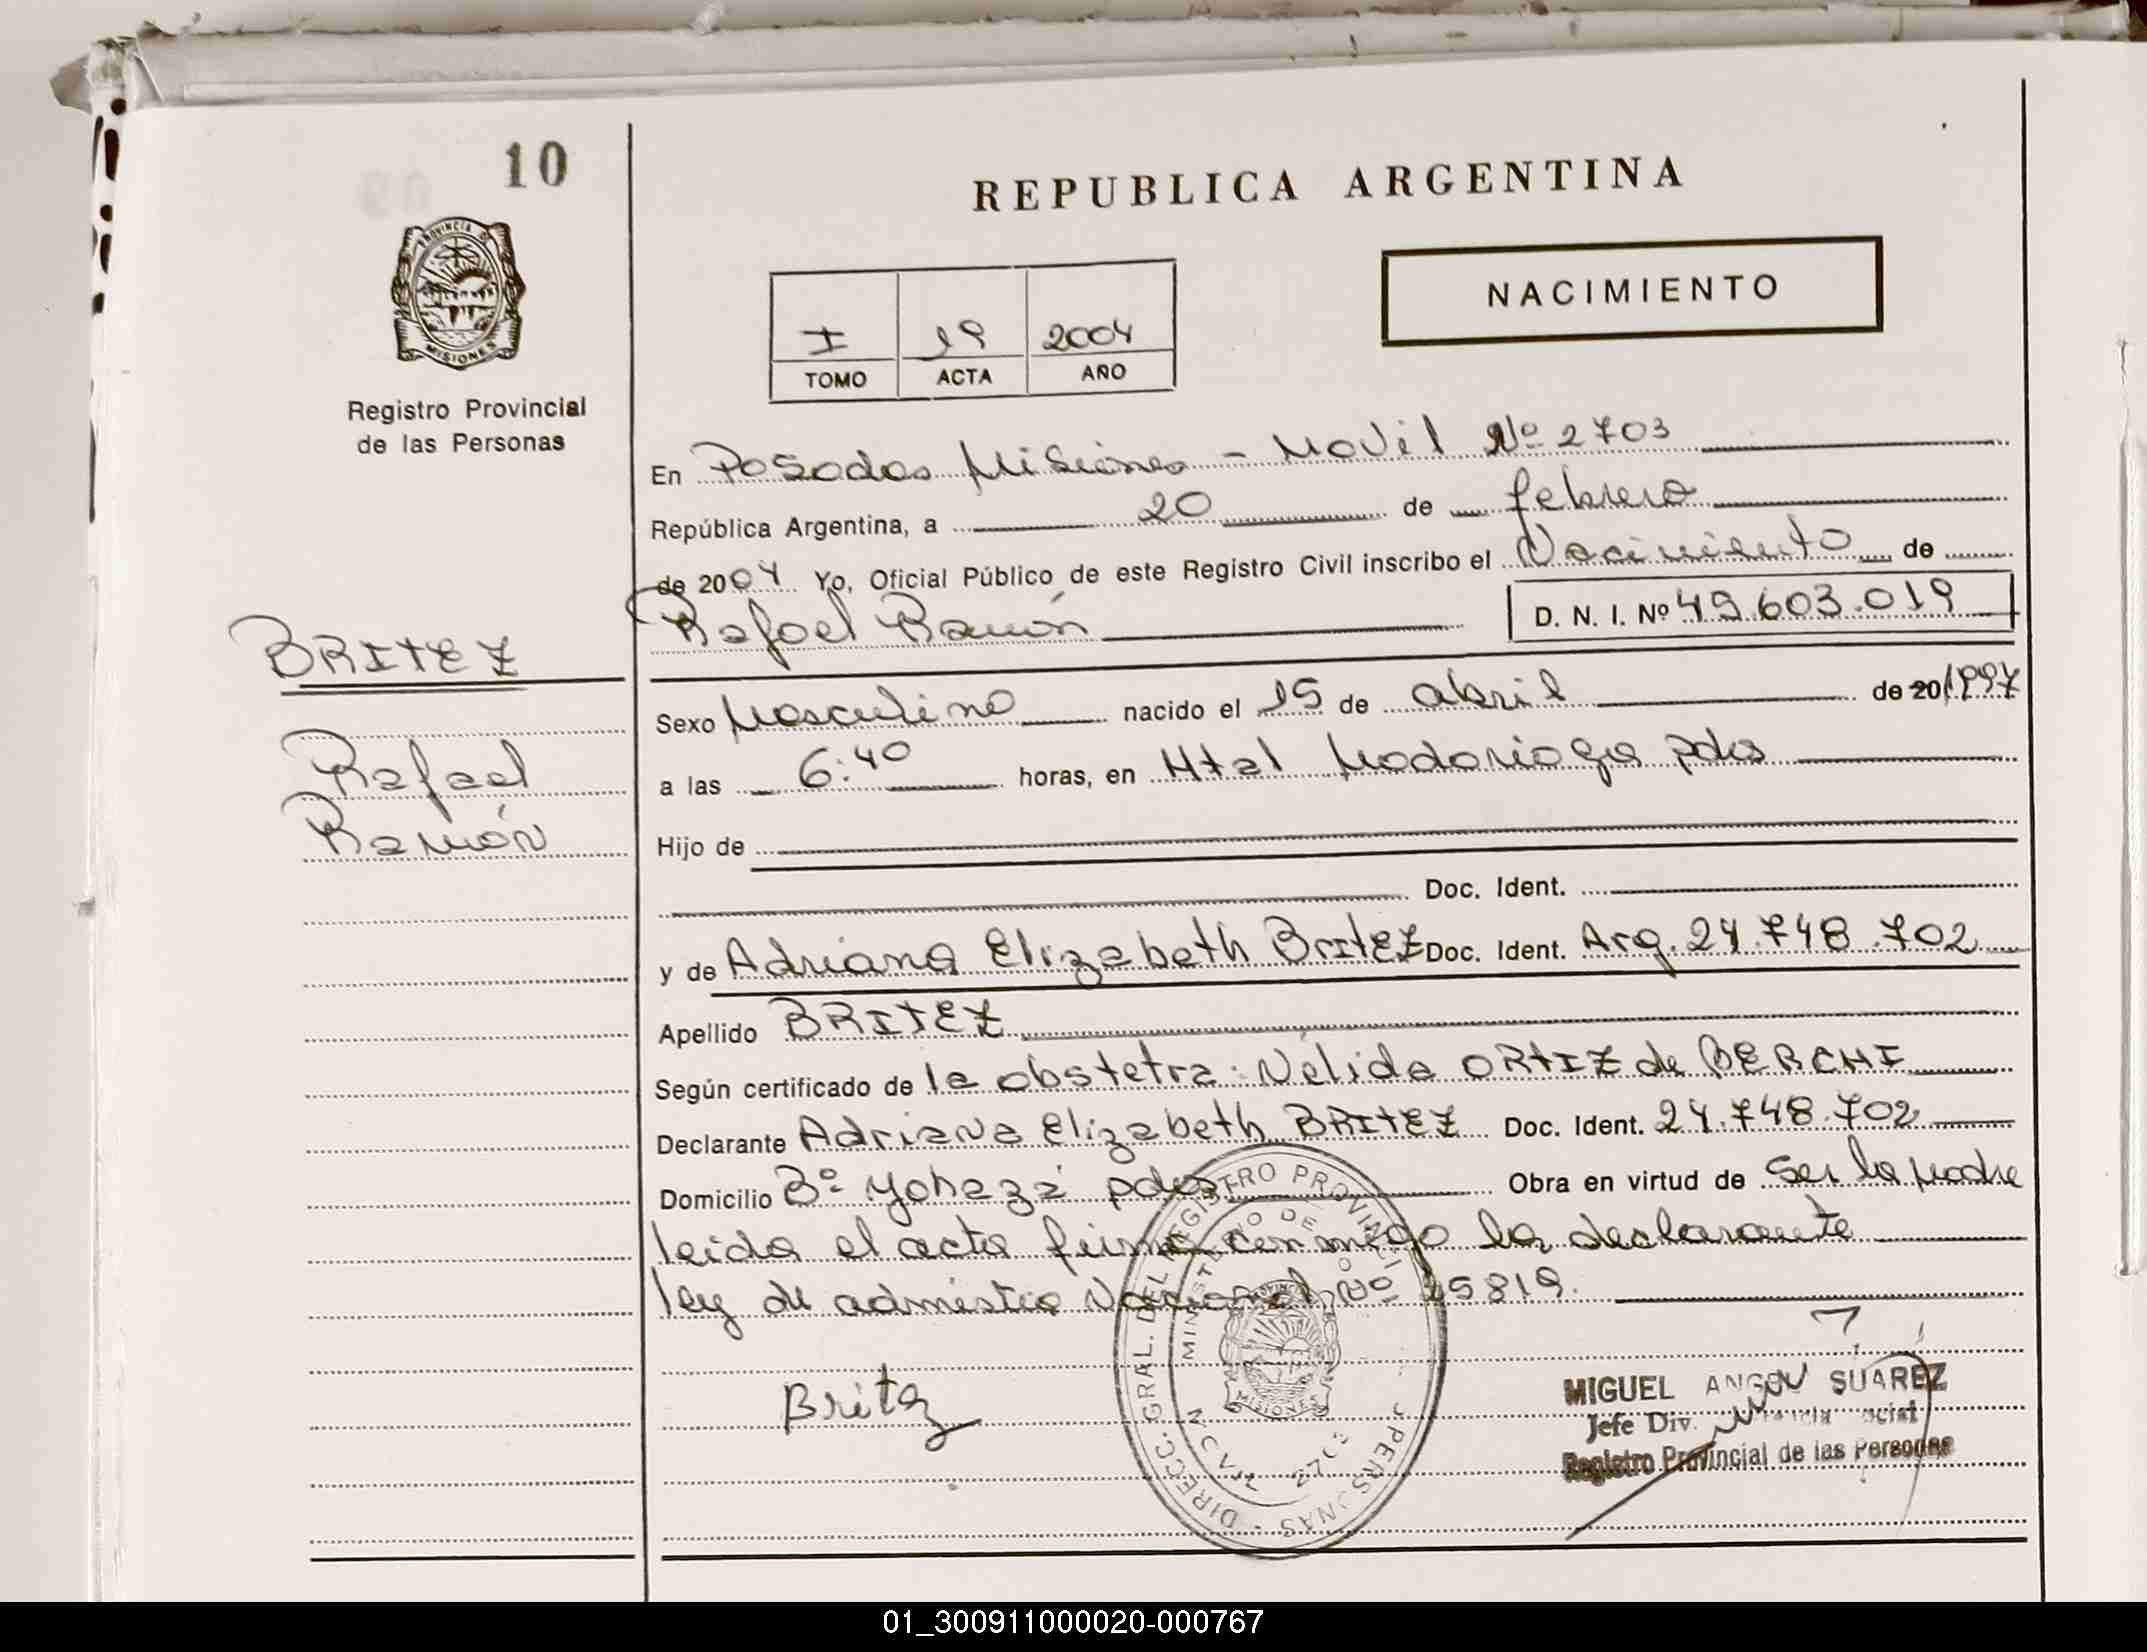 10
REPUBLICA ARGENTINA
NACIMIENTO
I 19 2004
TOMO ACTA AÑO
PROVINCIA D
MISIONES
Registro Provincial
de las Personas
En Posadas Misiones - Movil Nº 2703
República Argentina, a 20 de febrero
de 2004 Yo, Oficial Público de este Registro Civil inscribo el Nacimiento de
Rafael Ramón D. N. I. Nº 49.603.019
BRITEZ
Sexo Masculino nacido el 15 de abril de 20 1997
Rafael
a las 6:40 horas, en Htal Madariaga pdas
Ramón
Hijo de
Doc. Ident.
y de Adriana Elizabeth Britez Doc. Ident. Arg. 24.748.702
Apellido BRITEZ
Según certificado de la obstetra: Nélida ORTIZ de BERCHI
Declarante Adriana Elizabeth BRITEZ Doc. Ident. 24.748.702
Domicilio Bº Yohazá pdas Obra en virtud de ser la madre
leida el acta firma conmigo la declarante
ley de admistia Nacional Nº 25819.
DIRECC. GRAL. DEL REGISTRO PROVINCIAL PERSONAS
MINISTERIO DE 2703
MISIONES
Britez
MIGUEL ANGEL SUAREZ
Jefe Div.
Registro Provincial de las Personas
01_300911000020-000767